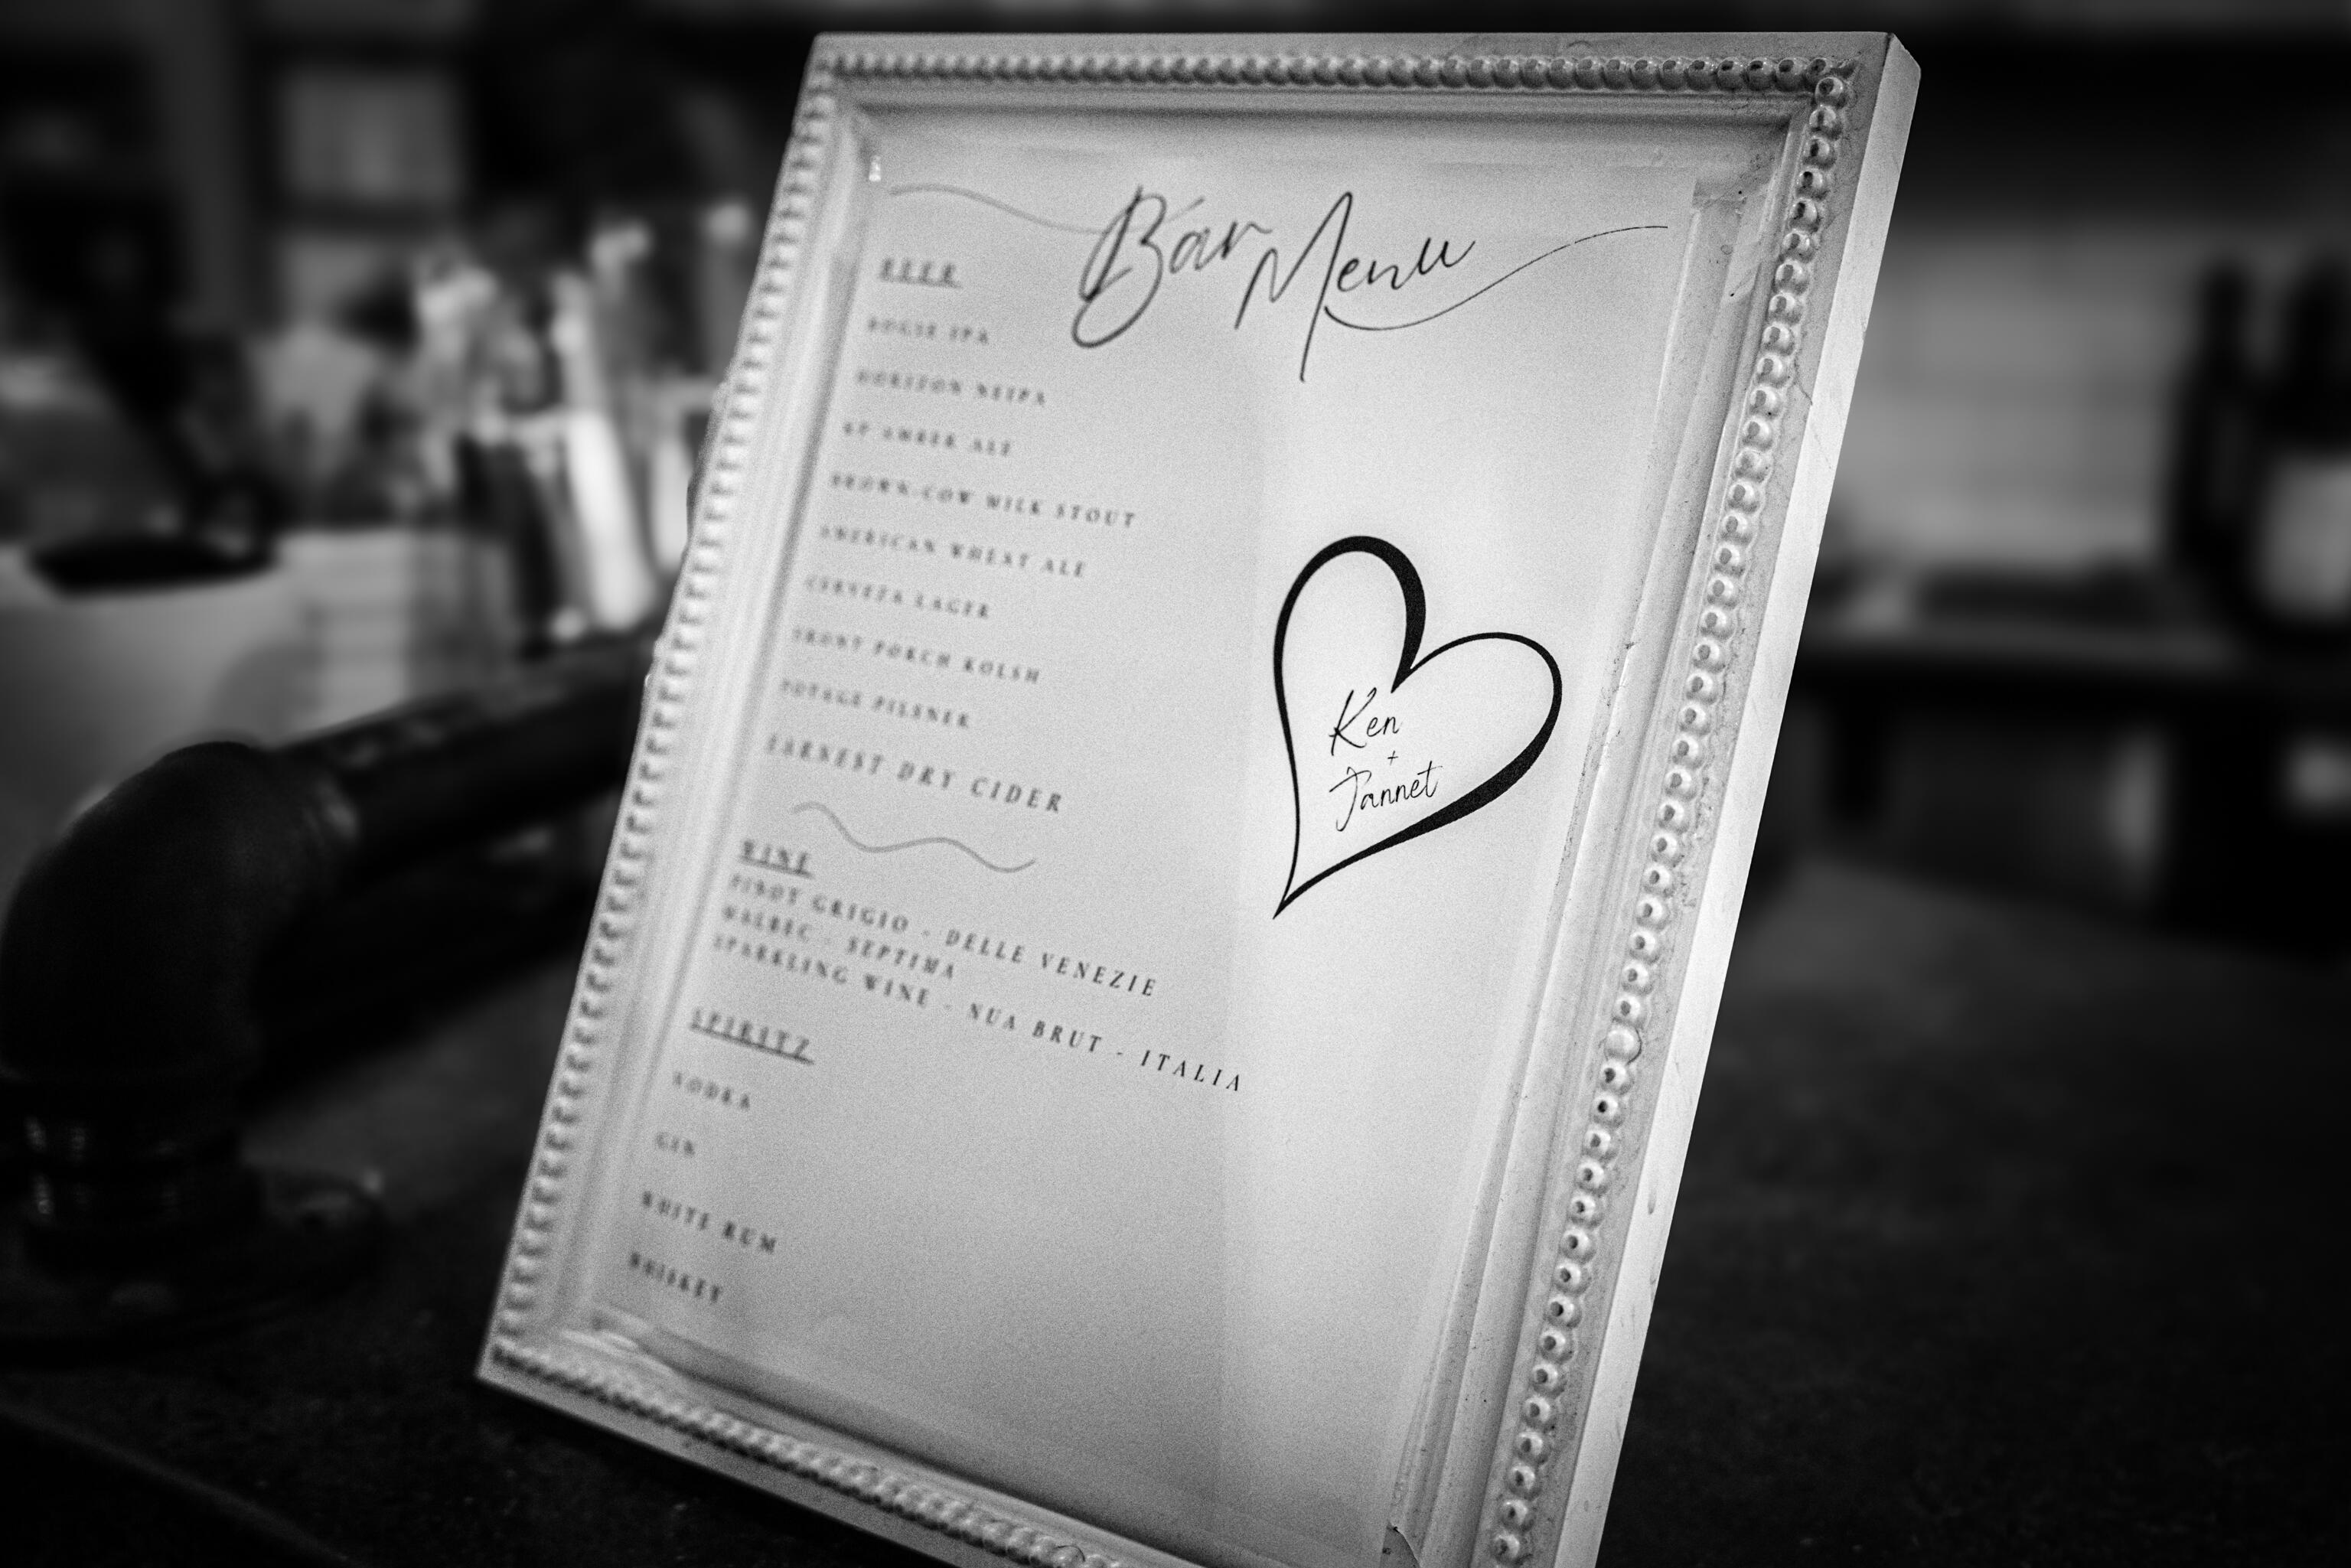 Bar Menu
BEER
IPA
HORIZON NEIPA
AMBER ALE
BROWN-COW MILK STOUT
AMERICAN WHEAT ALE
CERVEZA LAGER
FRONT PORCH KOLSH
PILSNER
EARNEST DRY CIDER
WINE
PINOT GRIGIO - DELLE VENEZIE
MALBEC - SEPTIMA
SPARKLING WINE - NUA BRUT - ITALIA
SPIRITZ
VODKA
GIN
WHITE RUM
WHISKEY
Ken
+
Jannet